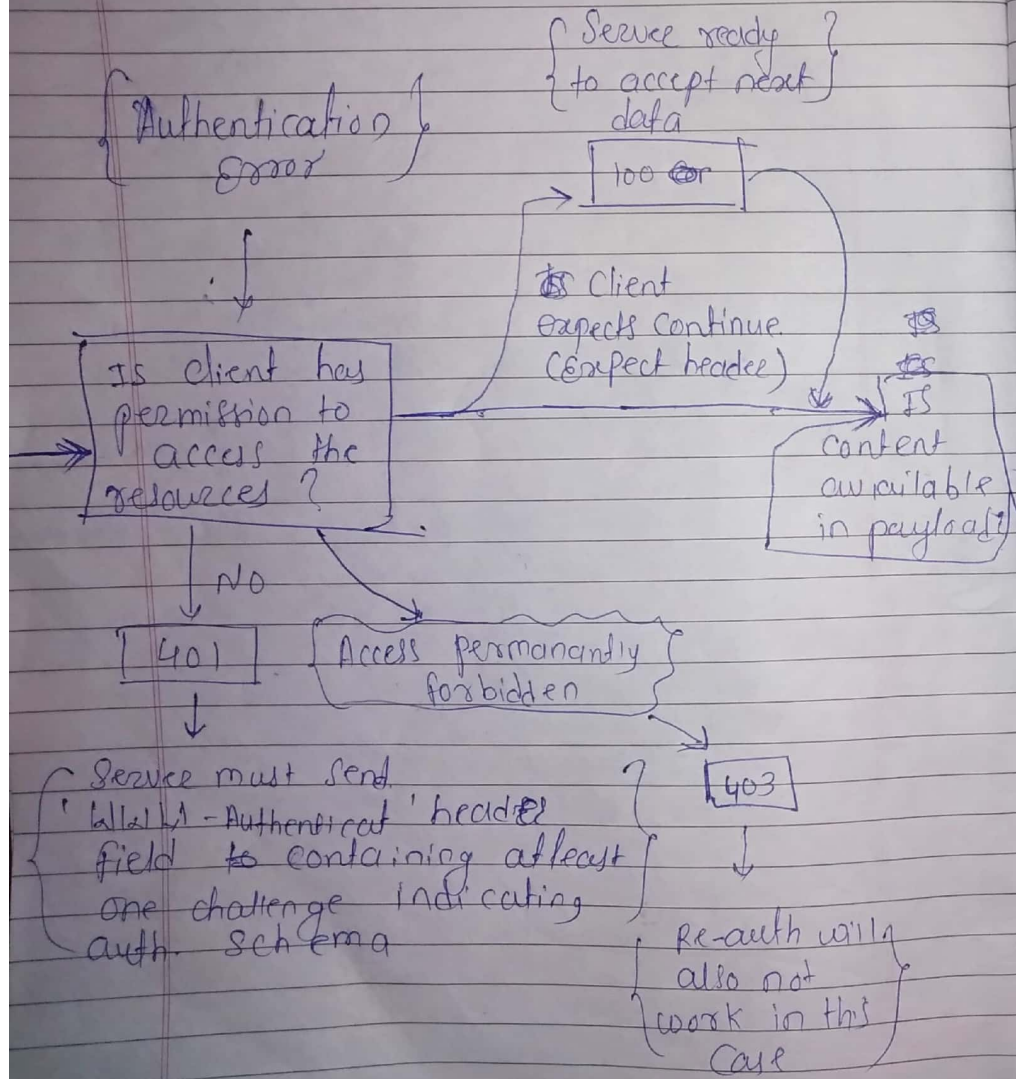 Service ready
to accept next
data
Authentication
Error
100
Client
expects continue
(Expect header)
Is client has
permission to
access the
resources ?
IS
content
available
in payload?
NO
401
Access permanantly
forbidden
403
Service must send
'WWW-Authenticat' header
field to containing atleast
one challenge indicating
auth. schema
Re-auth will
also not
work in this
case